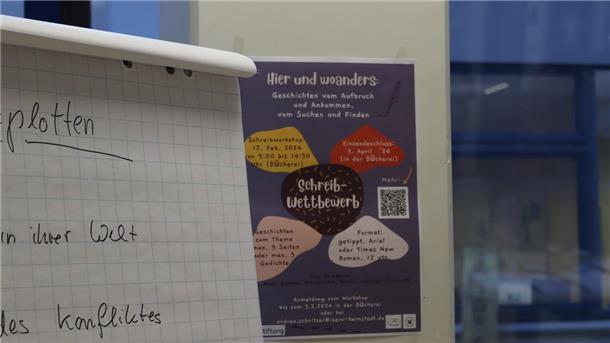 plotten
in ihrer Welt
des Konfliktes
Hier und woanders:
Geschichten vom Aufbruch
und Ankommen,
vom Suchen und Finden
Schreibworkshop:
12. Feb. 2024
von 9:00 bis 14:30
Uhr (BÜcherei)
Einsendeschluss:
5. April '24
(in der BÜcherei)
Mehr:
Schreib-
Wettbewerb
Geschichten
zum Thema
max. 3 Seiten
oder max. 3
Gedichte
Format:
getippt, Arial
oder Times New
Roman, 12 pts.
Anmeldung zum Workshop
bis zum 5.2.2024 in der BÜcherei
oder bei
stiftung